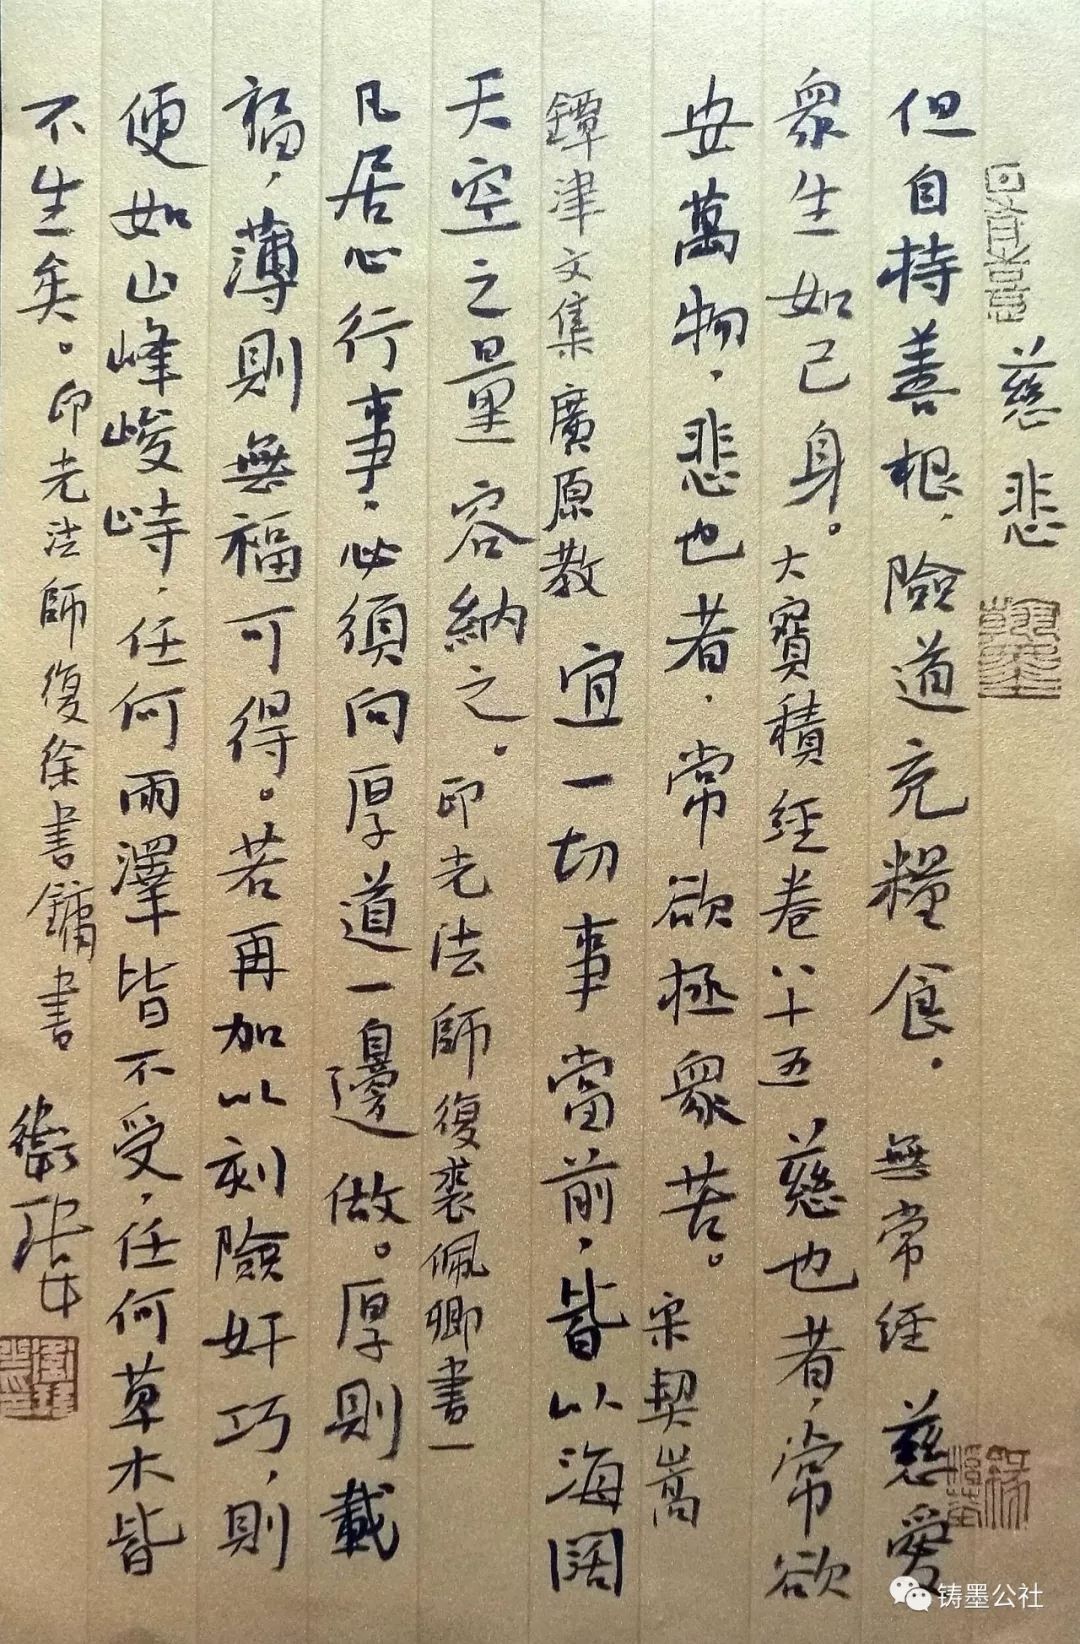 慈悲
但自持善根，險道充糧食。無常經 慈愛
眾生如己身。大寶積經卷八十五 慈也者，常欲
安萬物，悲也者，常欲極眾苦。宋契嵩
鐔津文集廣原教 宜一切事當前，皆以海闊
天空之量容納之。印光法師復裘佩卿書一
凡居心行事，必須向厚道一邊做。厚則載
福，薄則無福可得。若再加以刻險奸巧，則
便如山峰峻峙，任何雨澤皆不受，任何草木皆
不生矣。印光法師復徐書鏞書
翰墨
铸墨公社